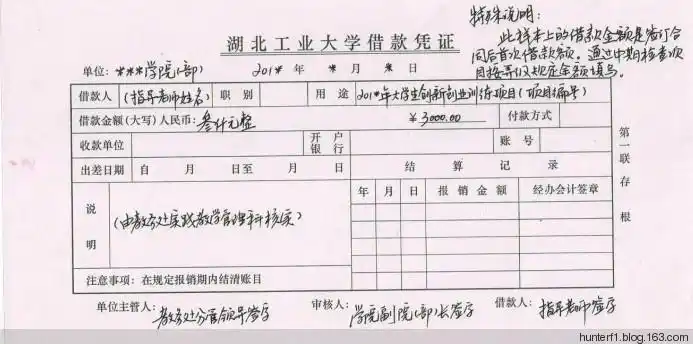 特殊说明:
此样本上的借款金额是签订合
同后首次借款额。通过中期检查项
目按第二次规定金额填写。
湖北工业大学借款凭证
单位: ***学院(部) 201*年 *月 *日
借款人 (指导老师姓名) 职别 用途 201*年大学生创新创业训练项目(项目编号)
借款金额(大写)人民币: 叁仟元整 ¥3000.00 付款方式
收款单位 开户银行 账号
出差日期 自 月 日至 月 日 结算记录
年 月 日 报销金额 经办会计签章
说明 (由教务处实践教学管理科核实)
注意事项: 在规定报销期内结清账目
第一联存根
单位主管人: 教务处分管领导签字 审核人: 学院副院(部)长签字 借款人: 指导老师签字
hunterf1.blog.163.com